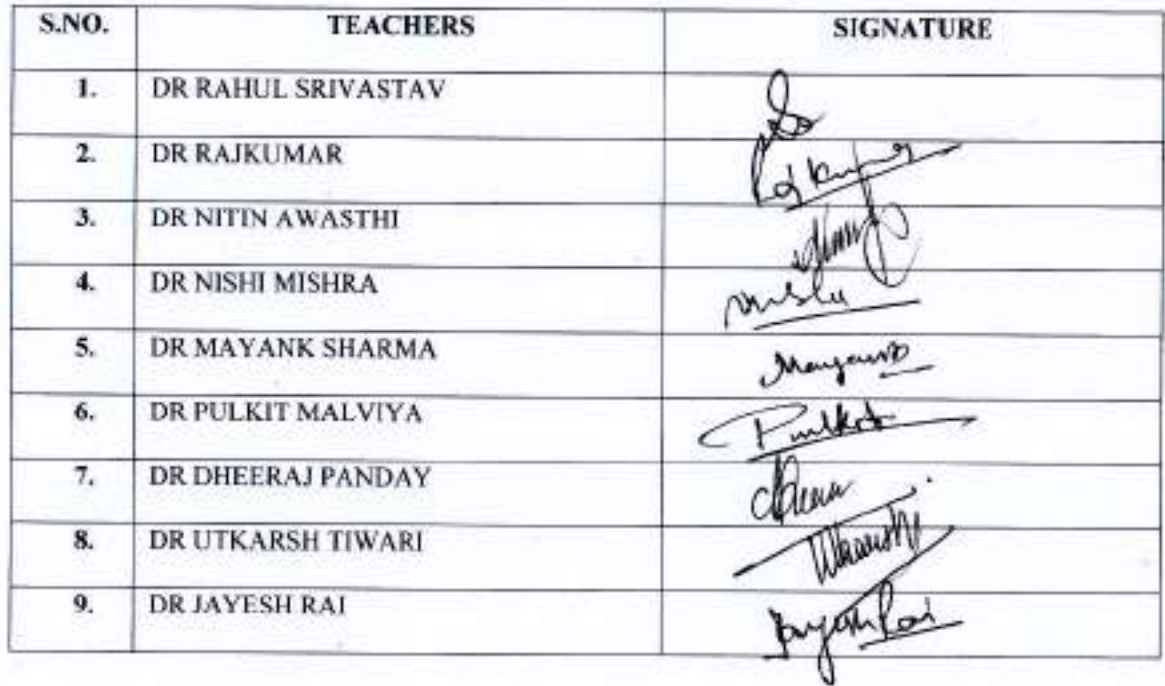 S.NO. TEACHERS SIGNATURE
1. DR RAHUL SRIVASTAV
2. DR RAJKUMAR Rajkumar
3. DR NITIN AWASTHI
4. DR NISHI MISHRA
5. DR MAYANK SHARMA
6. DR PULKIT MALVIYA Pulkit
7. DR DHEERAJ PANDAY
8. DR UTKARSH TIWARI
9. DR JAYESH RAI Jayesh Rai